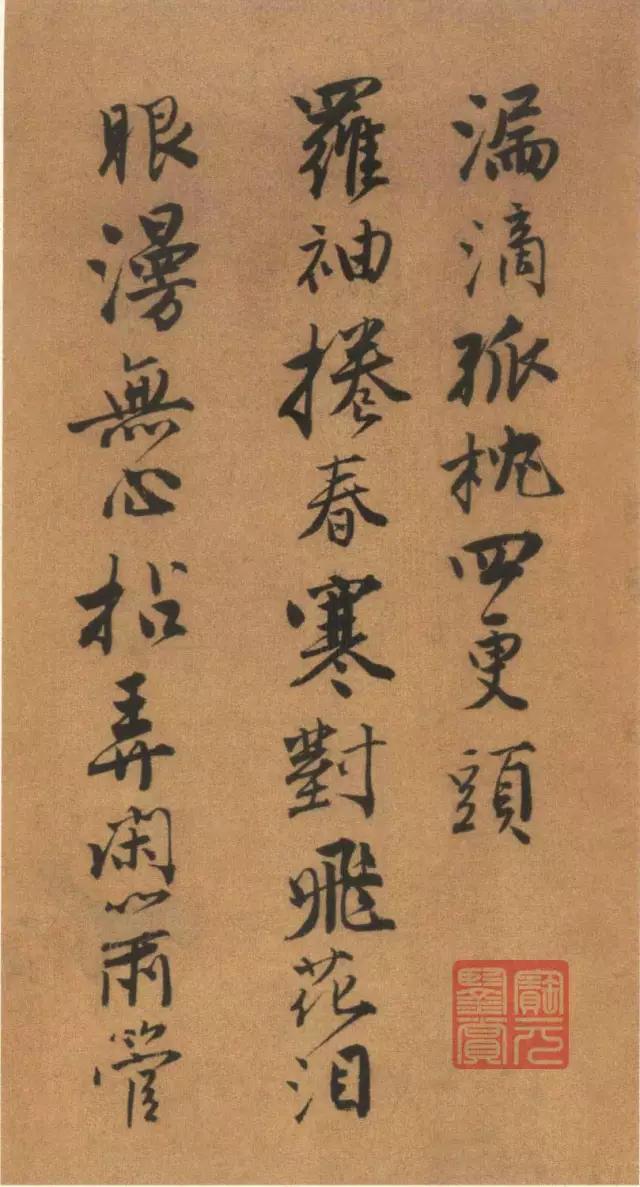 漏滴孤枕四更頭
羅袖捲春寒對飛花泪
眼漫無心拈弄閑簫管
寶元
鑒賞